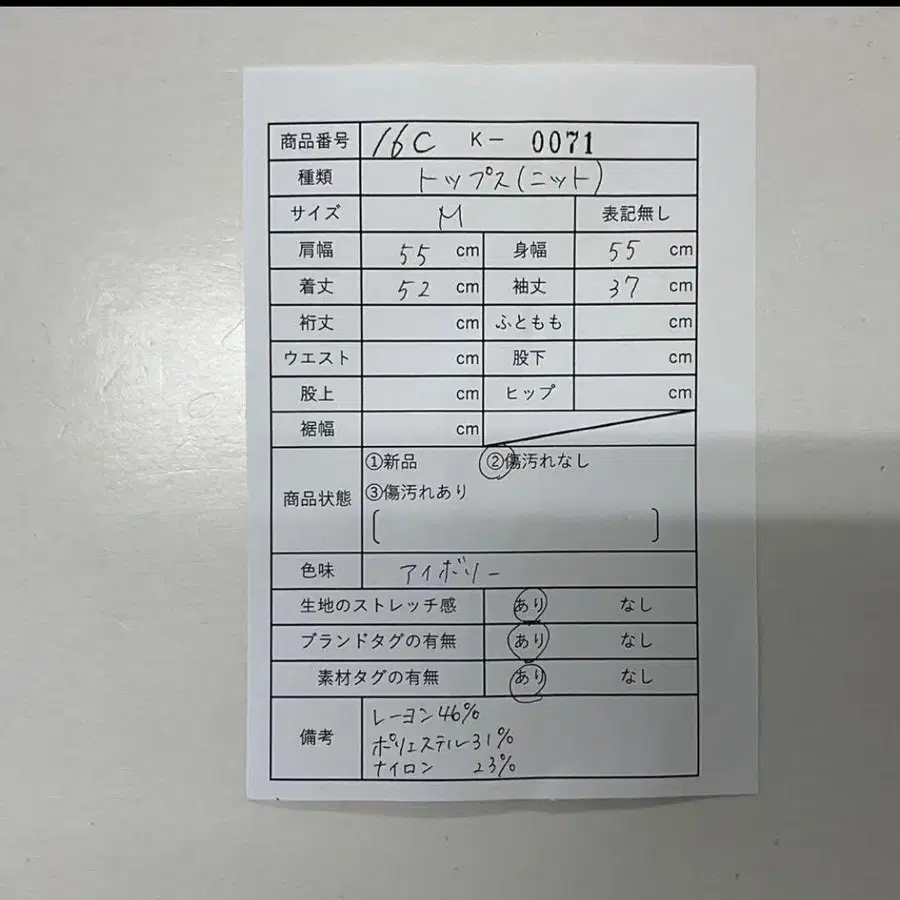 商品番号 16C K- 0071
種類 トップス(ニット)
サイズ M 表記無し
肩幅 55 cm 身幅 55 cm
着丈 52 cm 袖丈 37 cm
裄丈 cm ふともも cm
ウエスト cm 股下 cm
股上 cm ヒップ cm
裾幅 cm
商品状態 ①新品 ②傷汚れなし
③傷汚れあり
[ ]
色味 アイボリー
生地のストレッチ感 あり なし
ブランドタグの有無 あり なし
素材タグの有無 あり なし
備考 レーヨン46%
ポリエステル31%
ナイロン 23%